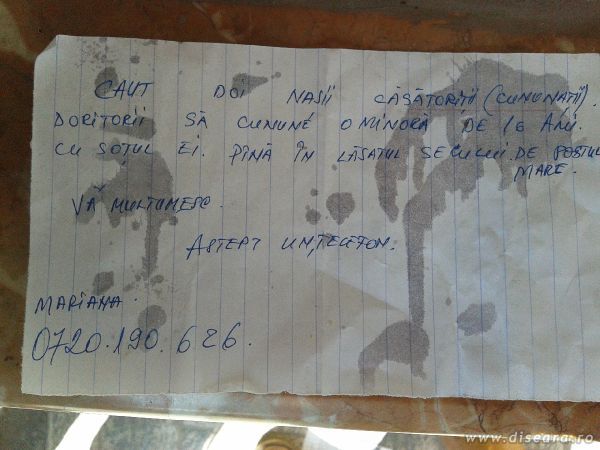 CAUT DOI NAȘII CĂSĂTORIȚII (CUNUNAȚII).
DORITORII SĂ CUNUNE O MINORĂ DE 16 ANI.
CU SOȚUL EI. PÎNĂ ÎN LĂSATUL SECULUI DE POSTUL
MARE.
VĂ MULTUMESC.
AȘTEPT UN, TELEFON.
MARIANA.
0720.190.626.
www.diseara.ro